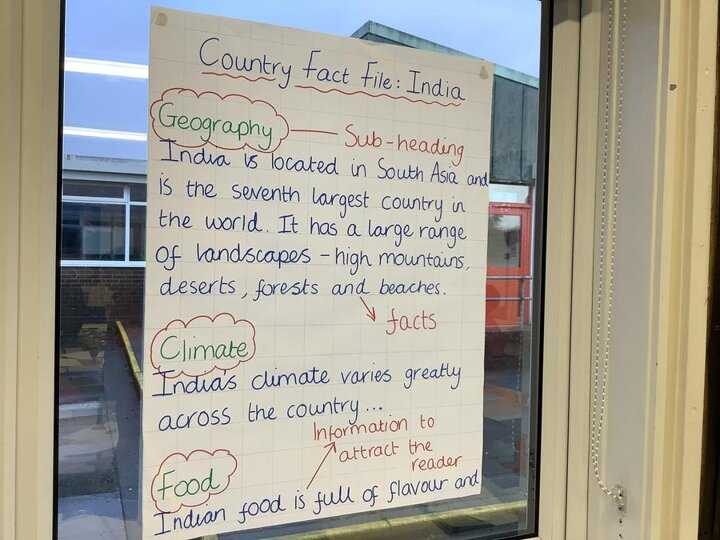 Country Fact File: India
Geography
Sub-heading
India is located in South Asia and
is the seventh largest country in
the world. It has a large range
of landscapes - high mountains,
deserts, forests and beaches.
facts
Climate
India's climate varies greatly
across the country...
Information to
attract the
reader
Food
Indian food is full of flavour and